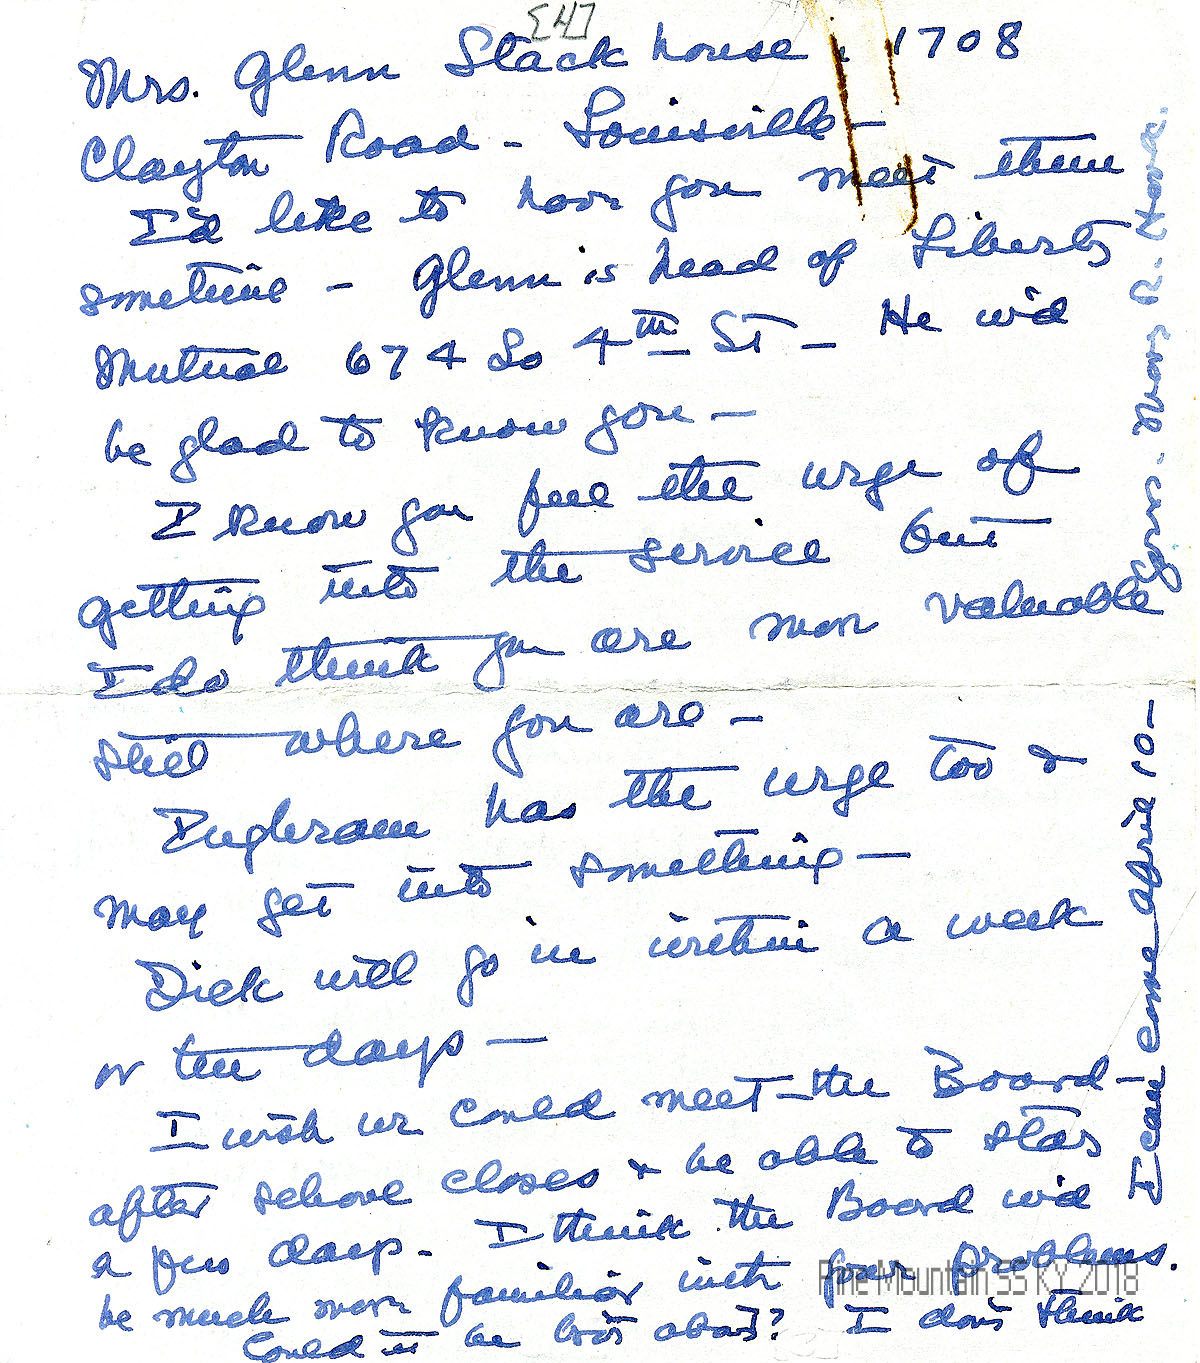 [4]
Mrs. Glenn Stackhouse, 1708
Clayton Road - Louisville -
I'd like to have you meet them
sometime - Glenn is head of Liberty
Mutual 674 So 4th St - He w'd
be glad to know you -
I know you feel the urge of
getting into the service but
I do think you are more valuable
still where you are -
Inghram has the urge too &
may get into something -
Dick will go in within a week
or ten days -
I wish we could meet - the Board -
after school closes & be able to stay
a few days - I think the Board w'd
be much more familiar with your problems.
Could it be brot about? I don't think
I can come April 10 -
Mrs. R. Hood
Pine Mountain SS KY 2018